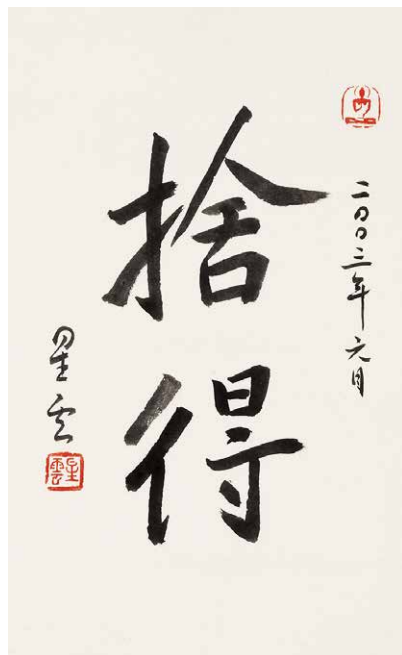 二〇〇三年元月
捨得
星云
星雲